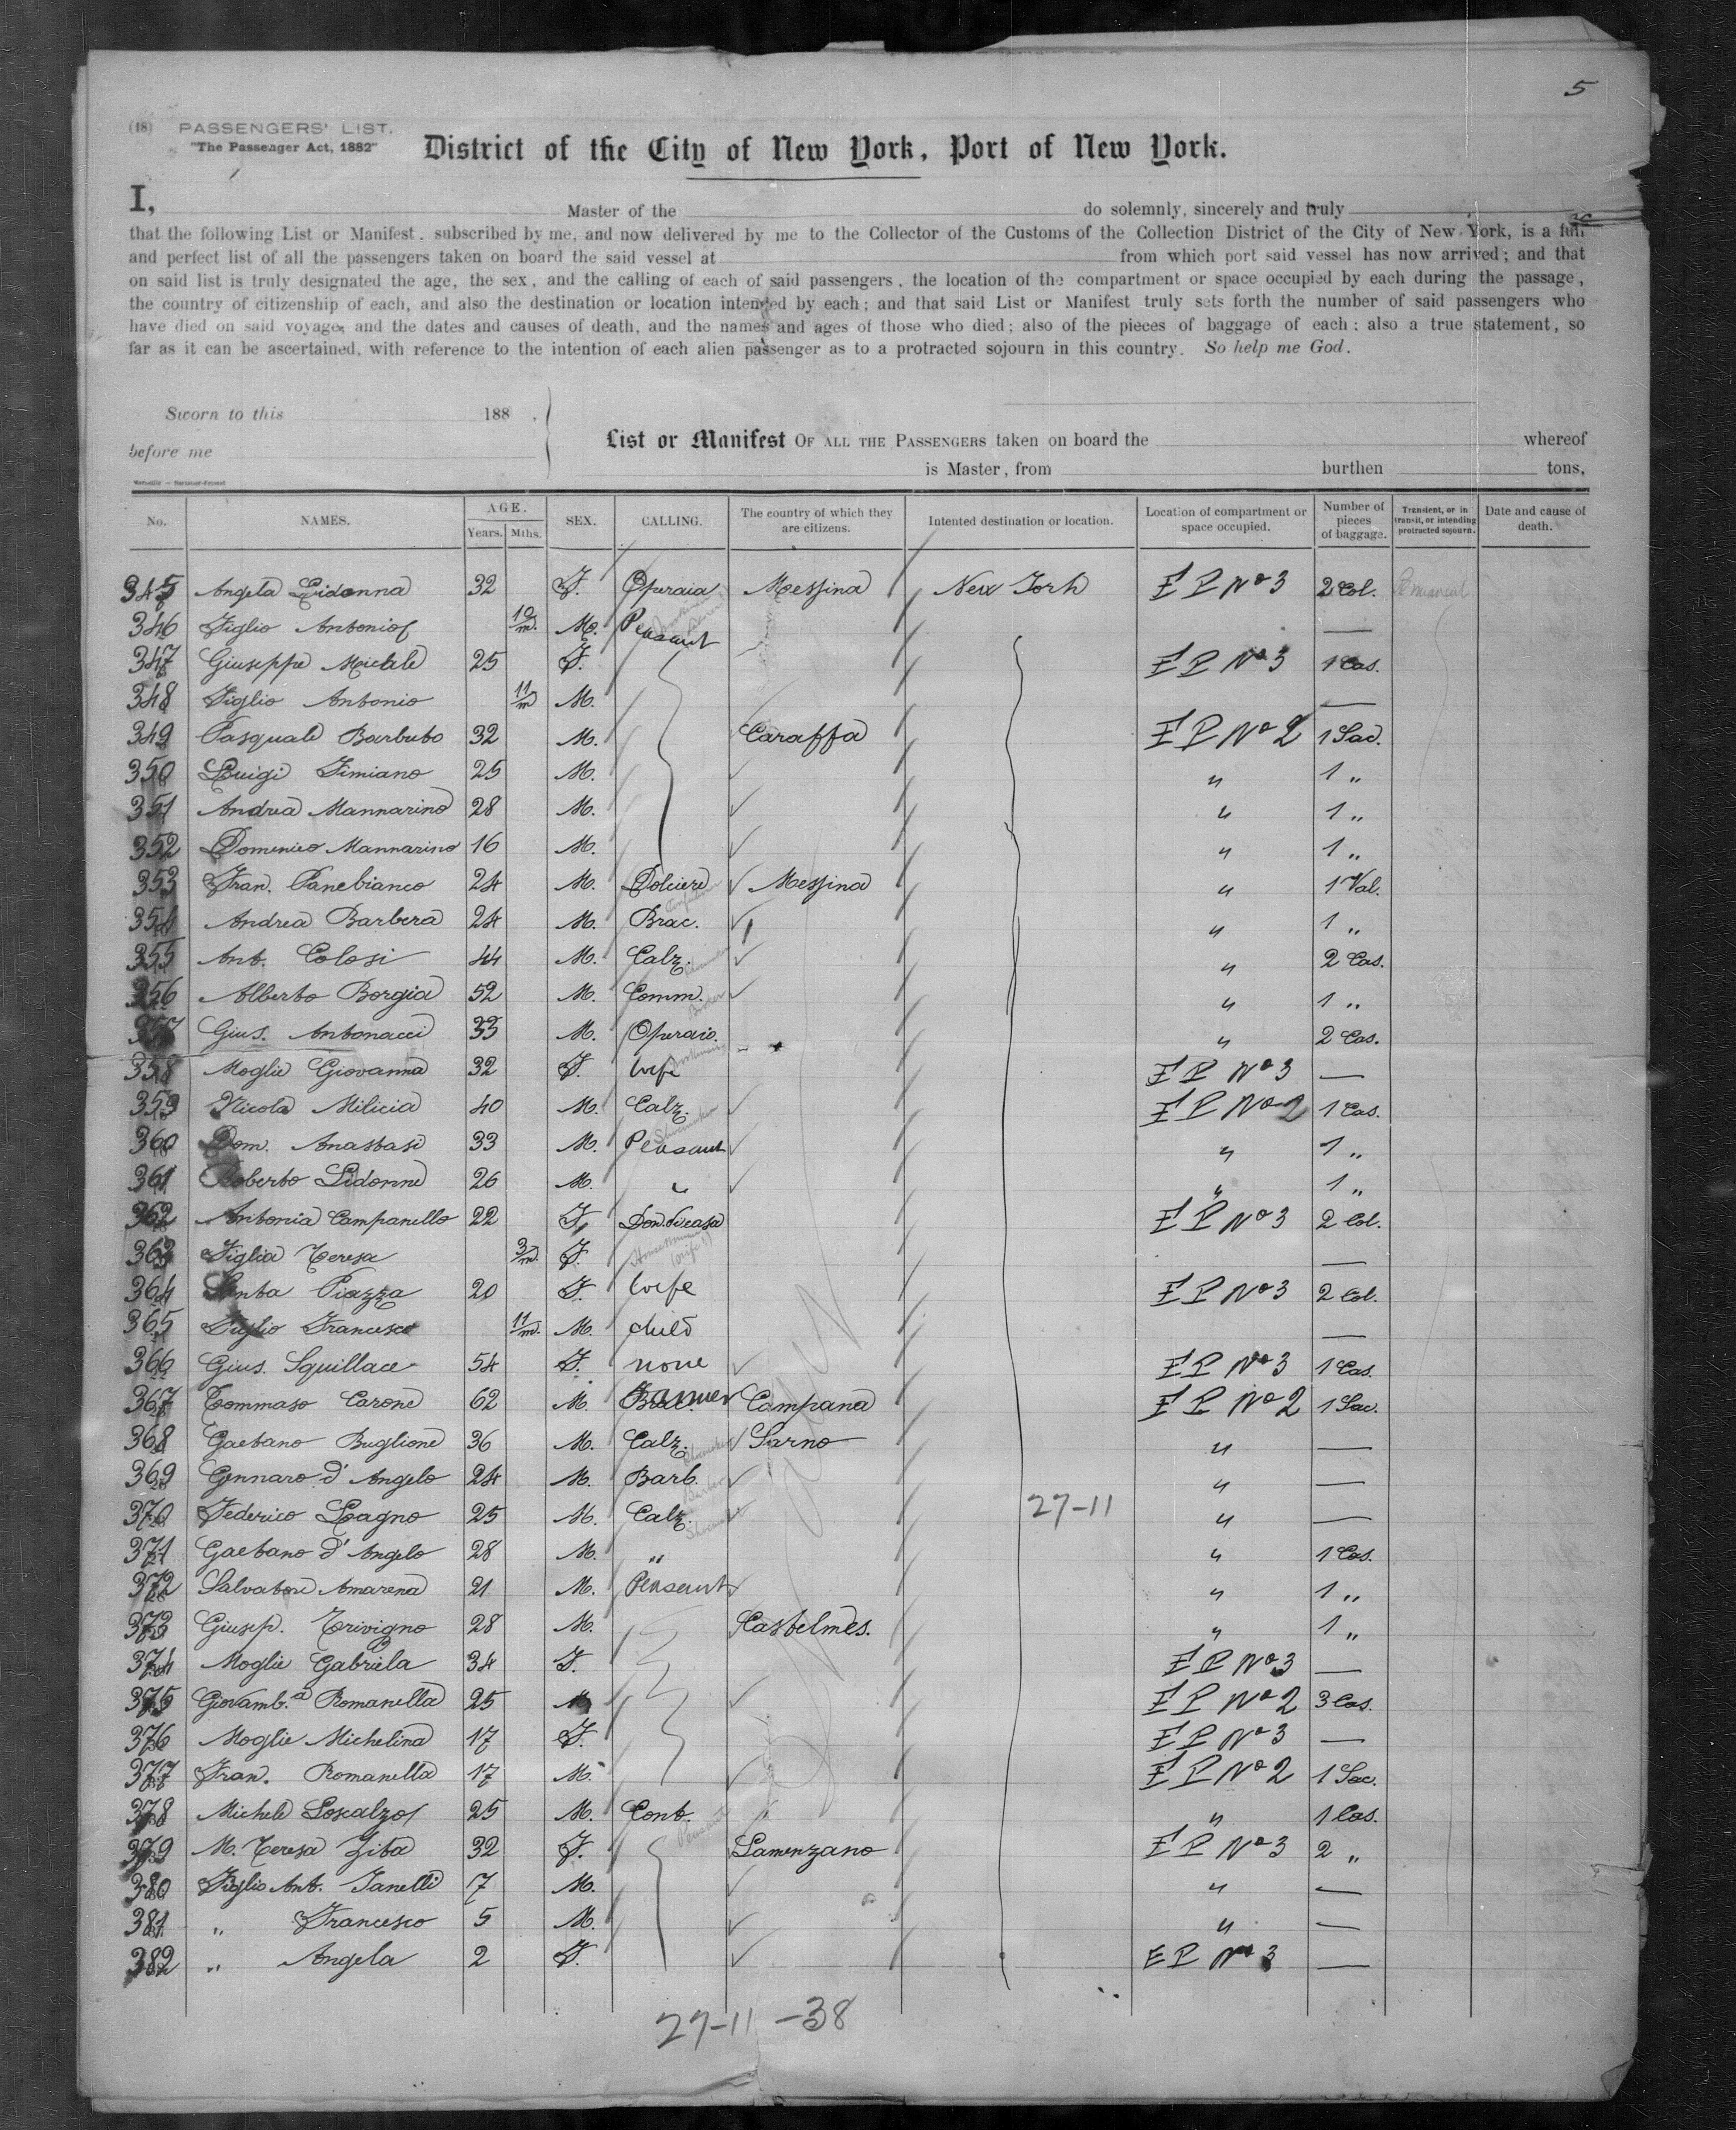 5
(18) PASSENGERS' LIST.
"The Passenger Act, 1882"
District of the City of New York, Port of New York.
I, Master of the do solemnly, sincerely and truly
that the following List or Manifest. subscribed by me, and now delivered by me to the Collector of the Customs of the Collection District of the City of New York, is a full
and perfect list of all the passengers taken on board the said vessel at from which port said vessel has now arrived; and that
on said list is truly designated the age, the sex, and the calling of each of said passengers. the location of the compartment or space occupied by each during the passage,
the country of citizenship of each, and also the destination or location intended by each; and that said List or Manifest truly sets forth the number of said passengers who
have died on said voyage, and the dates and causes of death, and the names and ages of those who died; also of the pieces of baggage of each: also a true statement, so
far as it can be ascertained, with reference to the intention of each alien passenger as to a protracted sojourn in this country. So help me God.
Sworn to this 188 .
before me
List or Manifest OF ALL THE PASSENGERS taken on board the whereof
is Master, from burthen tons,
No. NAMES. AGE. Years. Mths. SEX. CALLING. The country of which they are citizens. Intented destination or location. Location of compartment or space occupied. Number of pieces of baggage. Transient, or in transit, or intending protracted sojourn. Date and cause of death.
345 Angela Lidonna 32 F. Operaia Messina New York E P No 3 2 Col.
346 Figlio Antonio 10/m. M. Peasant —
347 Giuseppe Michele 25 F. E P No 3 1 Cas.
348 Figlio Antonio 11/m M. —
349 Pasquale Barbuto 32 M. Caraffa E P No 2 1 Sac.
350 Luigi Fimiano 25 M. " 1 "
351 Andrea Mannarino 28 M. " 1 "
352 Domenico Mannarino 16 M. " 1 "
353 Fran. Panebianco 24 M. Dolciere Messina " 1 Val.
354 Andrea Barbera 24 M. Brac. " 1 "
355 Ant. Colosi 44 M. Calz. " 2 Cas.
356 Alberto Borgia 52 M. Comm. " 1 "
357 Gius. Antonacci 33 M. Operaio. " 2 Cas.
358 Moglie Giovanna 32 F. Wife E P No 3 —
359 Nicola Milicia 40 M. Calz. E P No 2 1 Cas.
360 Dom. Anastasi 33 M. Peasant " 1 "
361 Roberto Lidonne 26 M. " " 1 "
362 Antonia Campanello 22 F. Don. di casa E P No 3 2 Col.
363 Figlia Teresa 3/m. F. —
364 Santa Piazza 20 F. Wife E P No 3 2 Col.
365 Figlio Francesco 11/m. M. child —
366 Gius. Squillace 54 F. none E P No 3 1 Cas.
367 Tommaso Carone 62 M. Farmer Campana E P No 2 1 Sac.
368 Gaetano Buglione 36 M. Calz. Sarno " —
369 Gennaro d' Angelo 24 M. Barb. " —
370 Federico Lagno 25 M. Calz. 27-11 " —
371 Gaetano d' Angelo 28 M. " " 1 Cas.
372 Salvatore Amarena 21 M. Peasant " 1 "
373 Giusep. Trivigno 28 M. Castelmes. " 1 "
374 Moglie Gabriela 34 F. E P No 3 —
375 Giovamb.a Romanella 25 M E P No 2 3 Cas.
376 Moglie Michelina 17 F. E P No 3 —
377 Fran. Romanella 17 M. E P No 2 1 Sac.
378 Michele Loscalzo 25 M. Cont. " " 1 Cas.
379 M. Teresa Zita 32 F. Lamenzano E P No 3 2 "
380 Figlio Ant. Ianelli 7 M. " —
381 " Francesco 5 M. " —
382 " Angela 2 F. E P No 3 —
27-11 -38